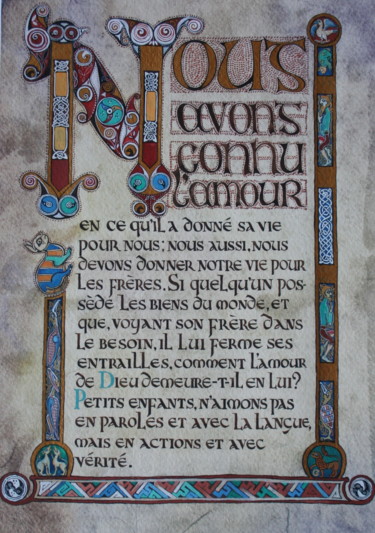 Nous
avons
connu
l'amour
en ce qu'il a donné sa vie
pour nous; nous aussi, nous
devons donner notre vie pour
les frères. Si quelqu'un pos-
sède les biens du monde, et
que, voyant son frère dans
le besoin, il lui ferme ses
entrailles, comment l'amour
de Dieu demeure-t-il en lui?
Petits enfants, n'aimons pas
en paroles et avec la langue,
mais en actions et avec
vérité.